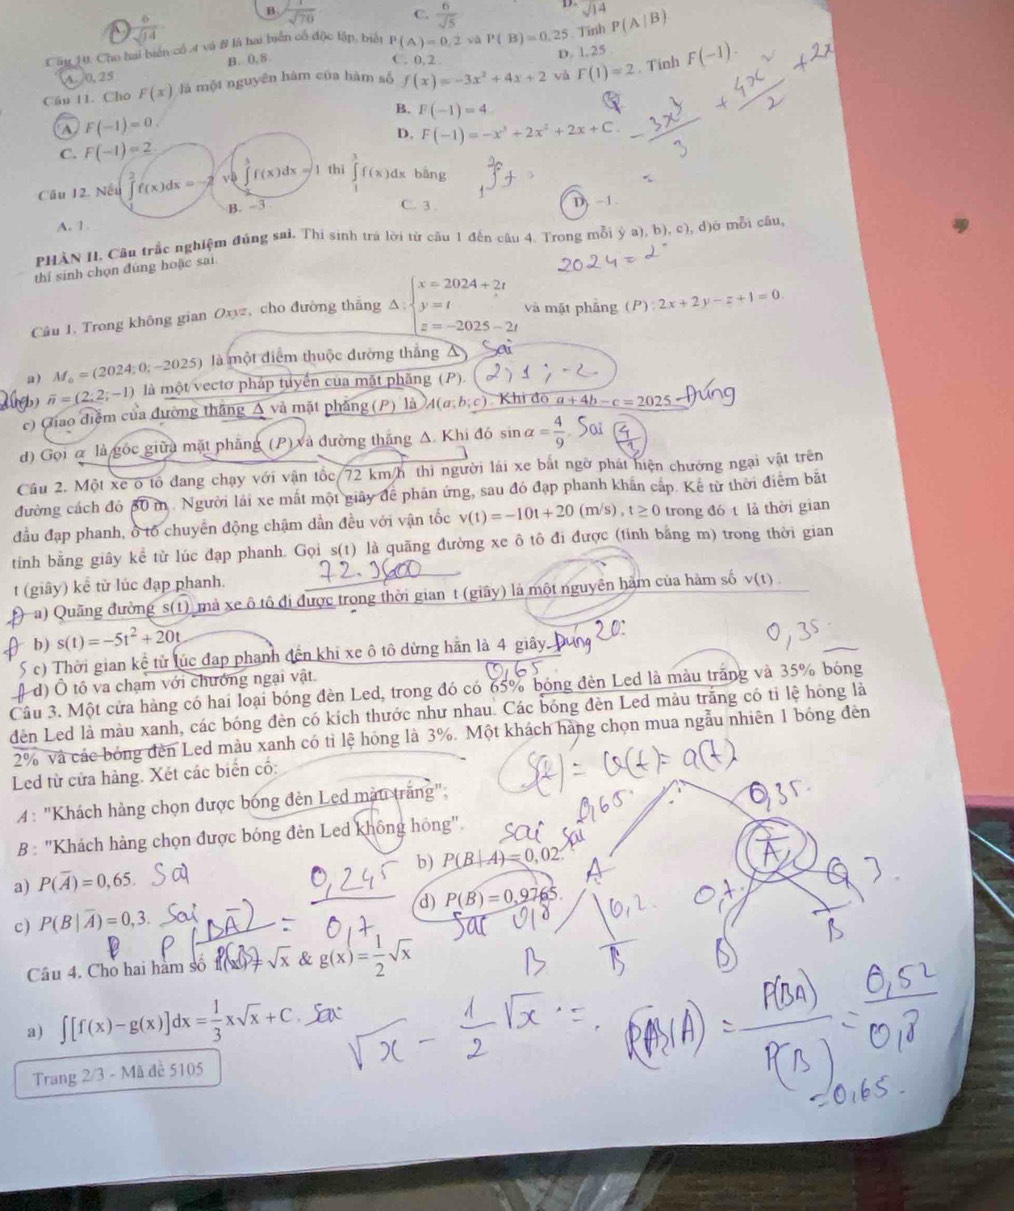 A 6/√14 B. 1/√70 C. 6/√5 D. √14
Câu 10. Cho hai biến cố A và B là hai biến cố độc lập, biết P(A)=0,2 và P(B)=0,25. Tính P(A|B)
A. 0,25 B. 0,8 C. 0,2. D. 1,25
Câu 11. Cho F(x) là một nguyên hàm của hàm số f(x)=-3x²+4x+2 và F(1)=2. Tính F(-1).
A F(-1)=0. B. F(-1)=4
C. F(-1)=2 D. F(-1)=-x³+2x²+2x+C.
-3x³/3 + 4x²/2 + 2x
Câu 12. Nếu ∫₁² f(x)dx = -2 và ∫₂³ f(x)dx = 1 thì ∫₁³ f(x)dx bằng
A. 1. B. -3 C. 3. D. -1.
PHẦN II. Câu trắc nghiệm đúng sai. Thí sinh trả lời từ câu 1 đến câu 4. Trong mỗi ý a), b), c), d)ở mỗi câu,
thí sinh chọn đúng hoặc sai.
2024 = 2
Câu 1. Trong không gian Oxyz, cho đường thẳng Δ: { x = 2024 + 2t
y = t
z = -2025 - 2t và mặt phẳng (P): 2x + 2y - z + 1 = 0.
a) M₀ = (2024; 0; -2025) là một điểm thuộc đường thẳng Δ Sai
b) n⃗ = (2; 2; -1) là một vectơ pháp tuyến của mặt phẳng (P). 2; 1; -2
c) Giao điểm của đường thẳng Δ và mặt phẳng (P) là A(a; b; c). Khi đó a + 4b - c = 2025 Đúng
d) Gọi α là góc giữa mặt phẳng (P) và đường thẳng Δ. Khi đó sin α = 4/9. Sai
Câu 2. Một xe ô tô đang chạy với vận tốc 72 km/h thì người lái xe bất ngờ phát hiện chướng ngại vật trên
đường cách đó 50 m. Người lái xe mất một giây để phản ứng, sau đó đạp phanh khẩn cấp. Kể từ thời điểm bắt
đầu đạp phanh, ô tô chuyển động chậm dần đều với vận tốc v(t) = -10t + 20 (m/s), t ≥ 0 trong đó t là thời gian
tính bằng giây kể từ lúc đạp phanh. Gọi s(t) là quãng đường xe ô tô đi được (tính bằng m) trong thời gian
t (giây) kể từ lúc đạp phanh. 72.3600
a) Quãng đường s(t) mà xe ô tô đi được trong thời gian t (giây) là một nguyên hàm của hàm số v(t).
b) s(t) = -5t² + 20t
c) Thời gian kể từ lúc đạp phanh đến khi xe ô tô dừng hẳn là 4 giây. Đúng 20: 0,35
d) Ô tô va chạm với chướng ngại vật. 0,65
Câu 3. Một cửa hàng có hai loại bóng đèn Led, trong đó có 65% bóng đèn Led là màu trắng và 35% bóng
đèn Led là màu xanh, các bóng đèn có kích thước như nhau. Các bóng đèn Led màu trắng có tỉ lệ hỏng là
2% và các bóng đèn Led màu xanh có tỉ lệ hỏng là 3%. Một khách hàng chọn mua ngẫu nhiên 1 bóng đèn
Led từ cửa hàng. Xét các biến cố:
A: "Khách hàng chọn được bóng đèn Led màu trắng";
B: "Khách hàng chọn được bóng đèn Led không hỏng".
a) P(A̅) = 0,65. Sai b) P(B|A) = 0,02. sai
c) P(B|A̅) = 0,3. Sai d) P(B) = 0,9765. Sai
0,65 0,35
A A̅
0,8 0,2 0,7 0,3
B B̅ B B̅
P(BA̅) = 0,245 / 0,7
Câu 4. Cho hai hàm số f(x) = √x & g(x) = 1/2 √x
a) ∫[f(x) - g(x)]dx = 1/3 x√x + C. Sai
√x - 1/2 √x =
P(BA) / P(B) = 0,52 / 0,8
= 0,65.
Trang 2/3 - Mã đề 5105